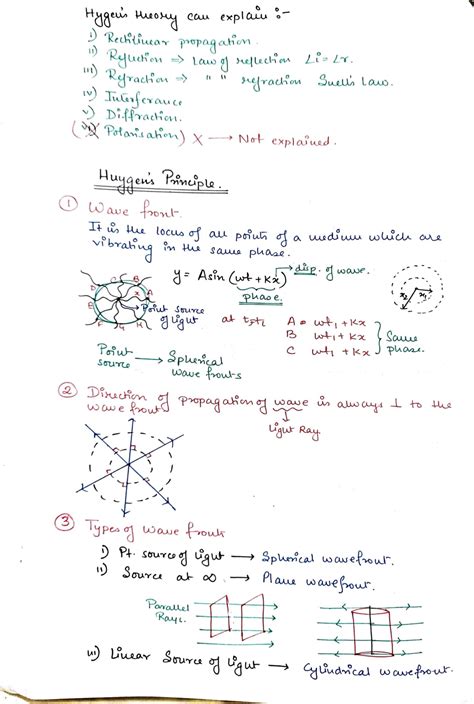 Hygen's theory can explain :-
i) Rectilinear propagation.
ii) Reflection ⇒ Law of reflection Li = Lr.
iii) Refraction ⇒ " " refraction Snell's Law.
iv) Interferance
v) Diffraction.
(vi) Polarisation) X → Not explained.
Huygen's Principle.
① Wave front.
It is the locus of all points of a medium which are
vibrating in the same phase.
y = A sin (wt + Kx) → disp. of wave.
phase.
D C B A
x
E F G H
Point source
of light
x2 x1
at t=t1 A = wt1 + Kx
B wt1 + Kx
C wt1 + Kx
Same
phase.
Point
source → Spherical
wave fronts
② Direction of propagation of wave is always ⊥ to the
wave front
Light Ray
③ Types of wave fronts
i) Pt. source of light → Spherical wavefront.
ii) Source at ∞ → Plane wavefront.
Parallel
Rays.
iii) Linear Source of light → Cylindrical wavefront.